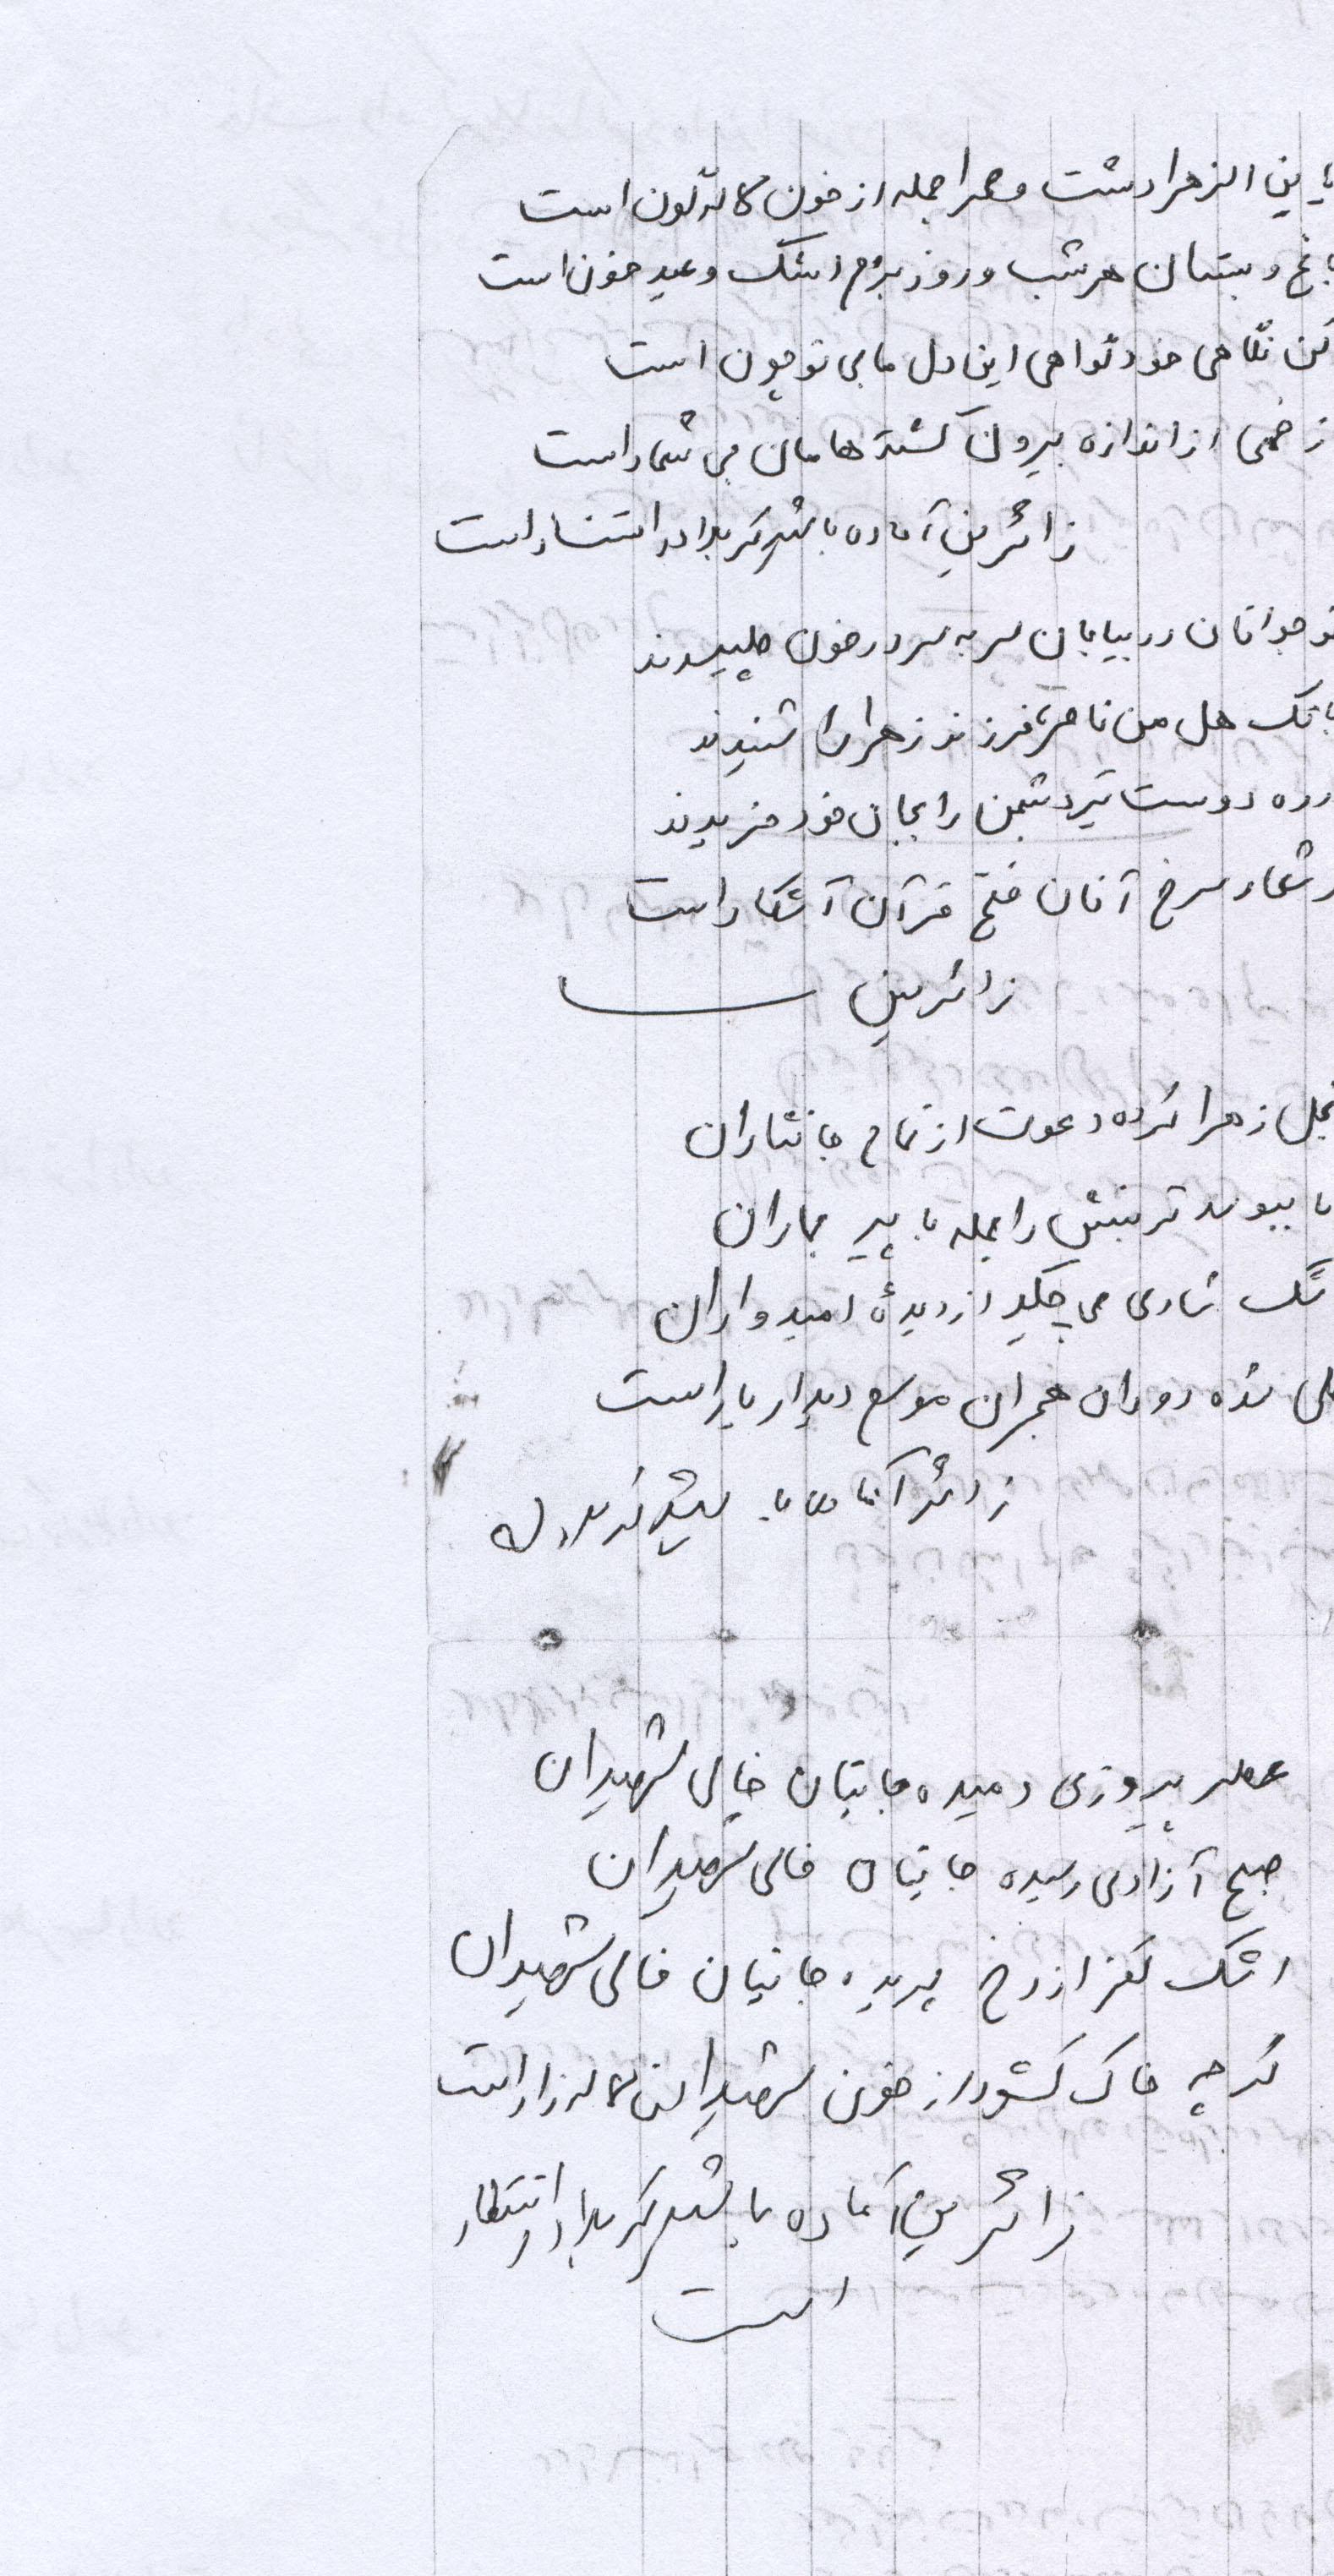 یابن الزهرا دشت و صحرا جمله از خون لاله گون است
باغ و بستان هر شب و روز بزم اشک و عید خون است
کن نگاهی خود گواهی این دل ما بی تو چون است
زخمی از اندازه بیرون کشته هامان بی شمار است
زائرین آماده باشید کربلا در انتظار است
نوجوانان در بیابان سر به سر در خون طپیدند
بانگ هل من ناصر فرزند زهرا را شنیدند
در ره دوست تیر دشمن را بجان خود خریدند
در شعار سرخ آنان فتح قرآن آشکار است
زائرین
نجل زهرا کرده دعوت از تمام جانثاران
تا ببوسد تربتش را جمله با پیر جماران
اشک شادی می چکید از دیدهٔ امیدواران
طی شده دوران هجران موسم دیدار یار است
زائر آماده باشید کربلا
عطر پیروزی دمیده جانتان خالی شهیدان
صبح آزادی رسیده جایتان خالی شهیدان
اشک کفر از رخ پریده جایتان خالی شهیدان
گرچه خاک کشور از خون شهیدان لاله زار است
زائرین آماده باشید کربلا در انتظار
است